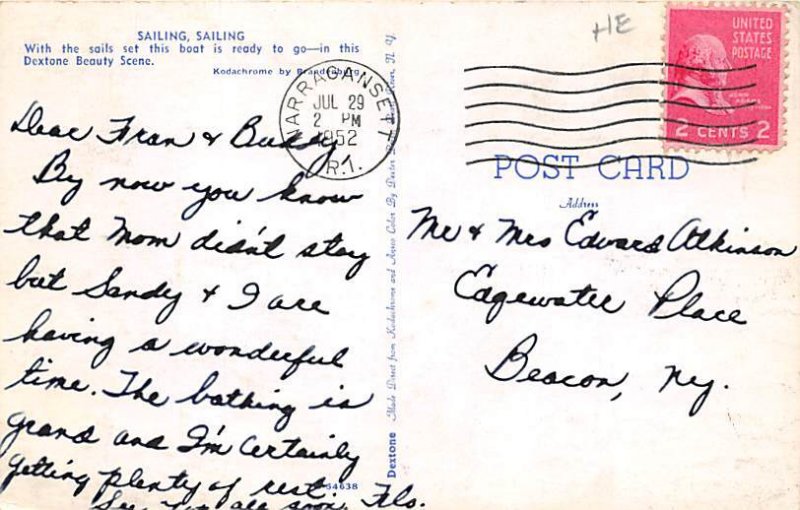 SAILING, SAILING
With the sails set this boat is ready to go—in this
Dextone Beauty Scene.
Kodachrome by Brandenburg
Dear Fran & Buddy
By now you know
that Mom didn't stay
but Sandy & I are
having a wonderful
time. The bathing is
grand and I'm certainly
getting plenty of rest.
See you all soon, Flo.
54638
Dextone Made Direct from Kodachrome and Ansco Color By Dexter N. Y.
NARRAGANSETT
JUL 29
2 PM
1952
R.I.
HE
UNITED
STATES
POSTAGE
2 CENTS 2
POST CARD
Address
Mr & Mrs Edward Atkinson
Edgewater Place
Beacon, Ny.